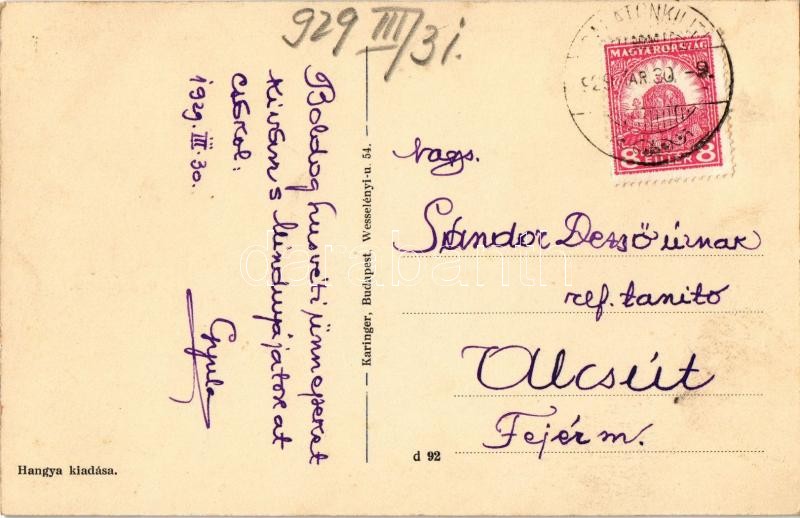 929 III/31.
Boldog husvéti ünnepeket
kiván s mindnyájatokat
csókol:
1929. III. 30.
Gyula
Hangya kiadása.
— Karinger, Budapest, Wesselényi-u. 54. —
d 92
MAGYARORSZÁG
8 FILLÉR 8
929 MAR. 30. -9.
Nags.
Sándor Dezső úrnak
ref. tanító
Alcsút
Fejér m.
darabanth